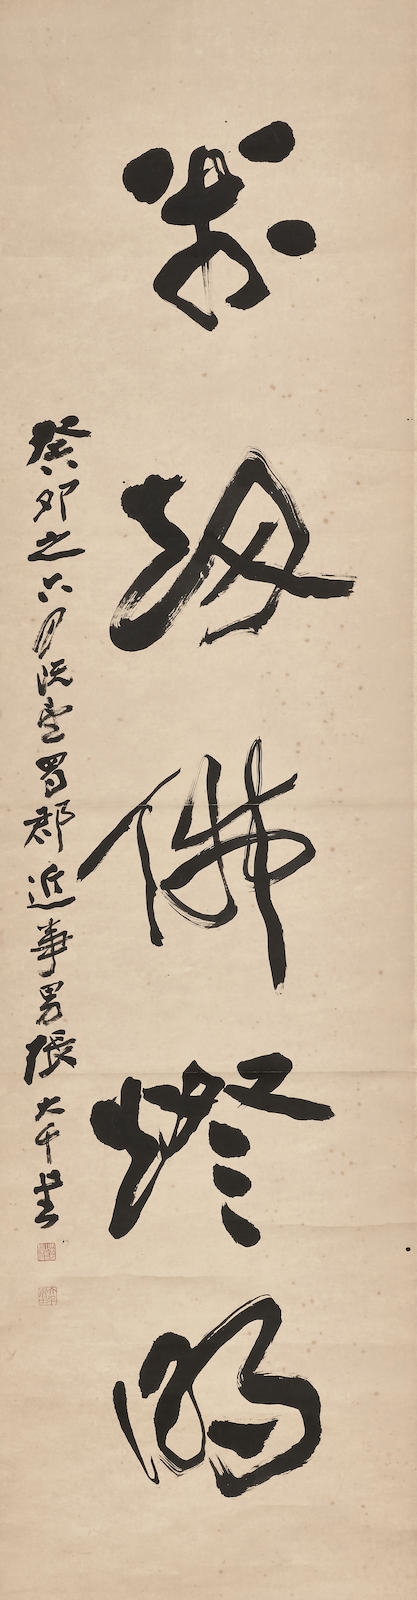 萬劫佛燈明
癸卯之六月既望蜀郡近事男張大千書